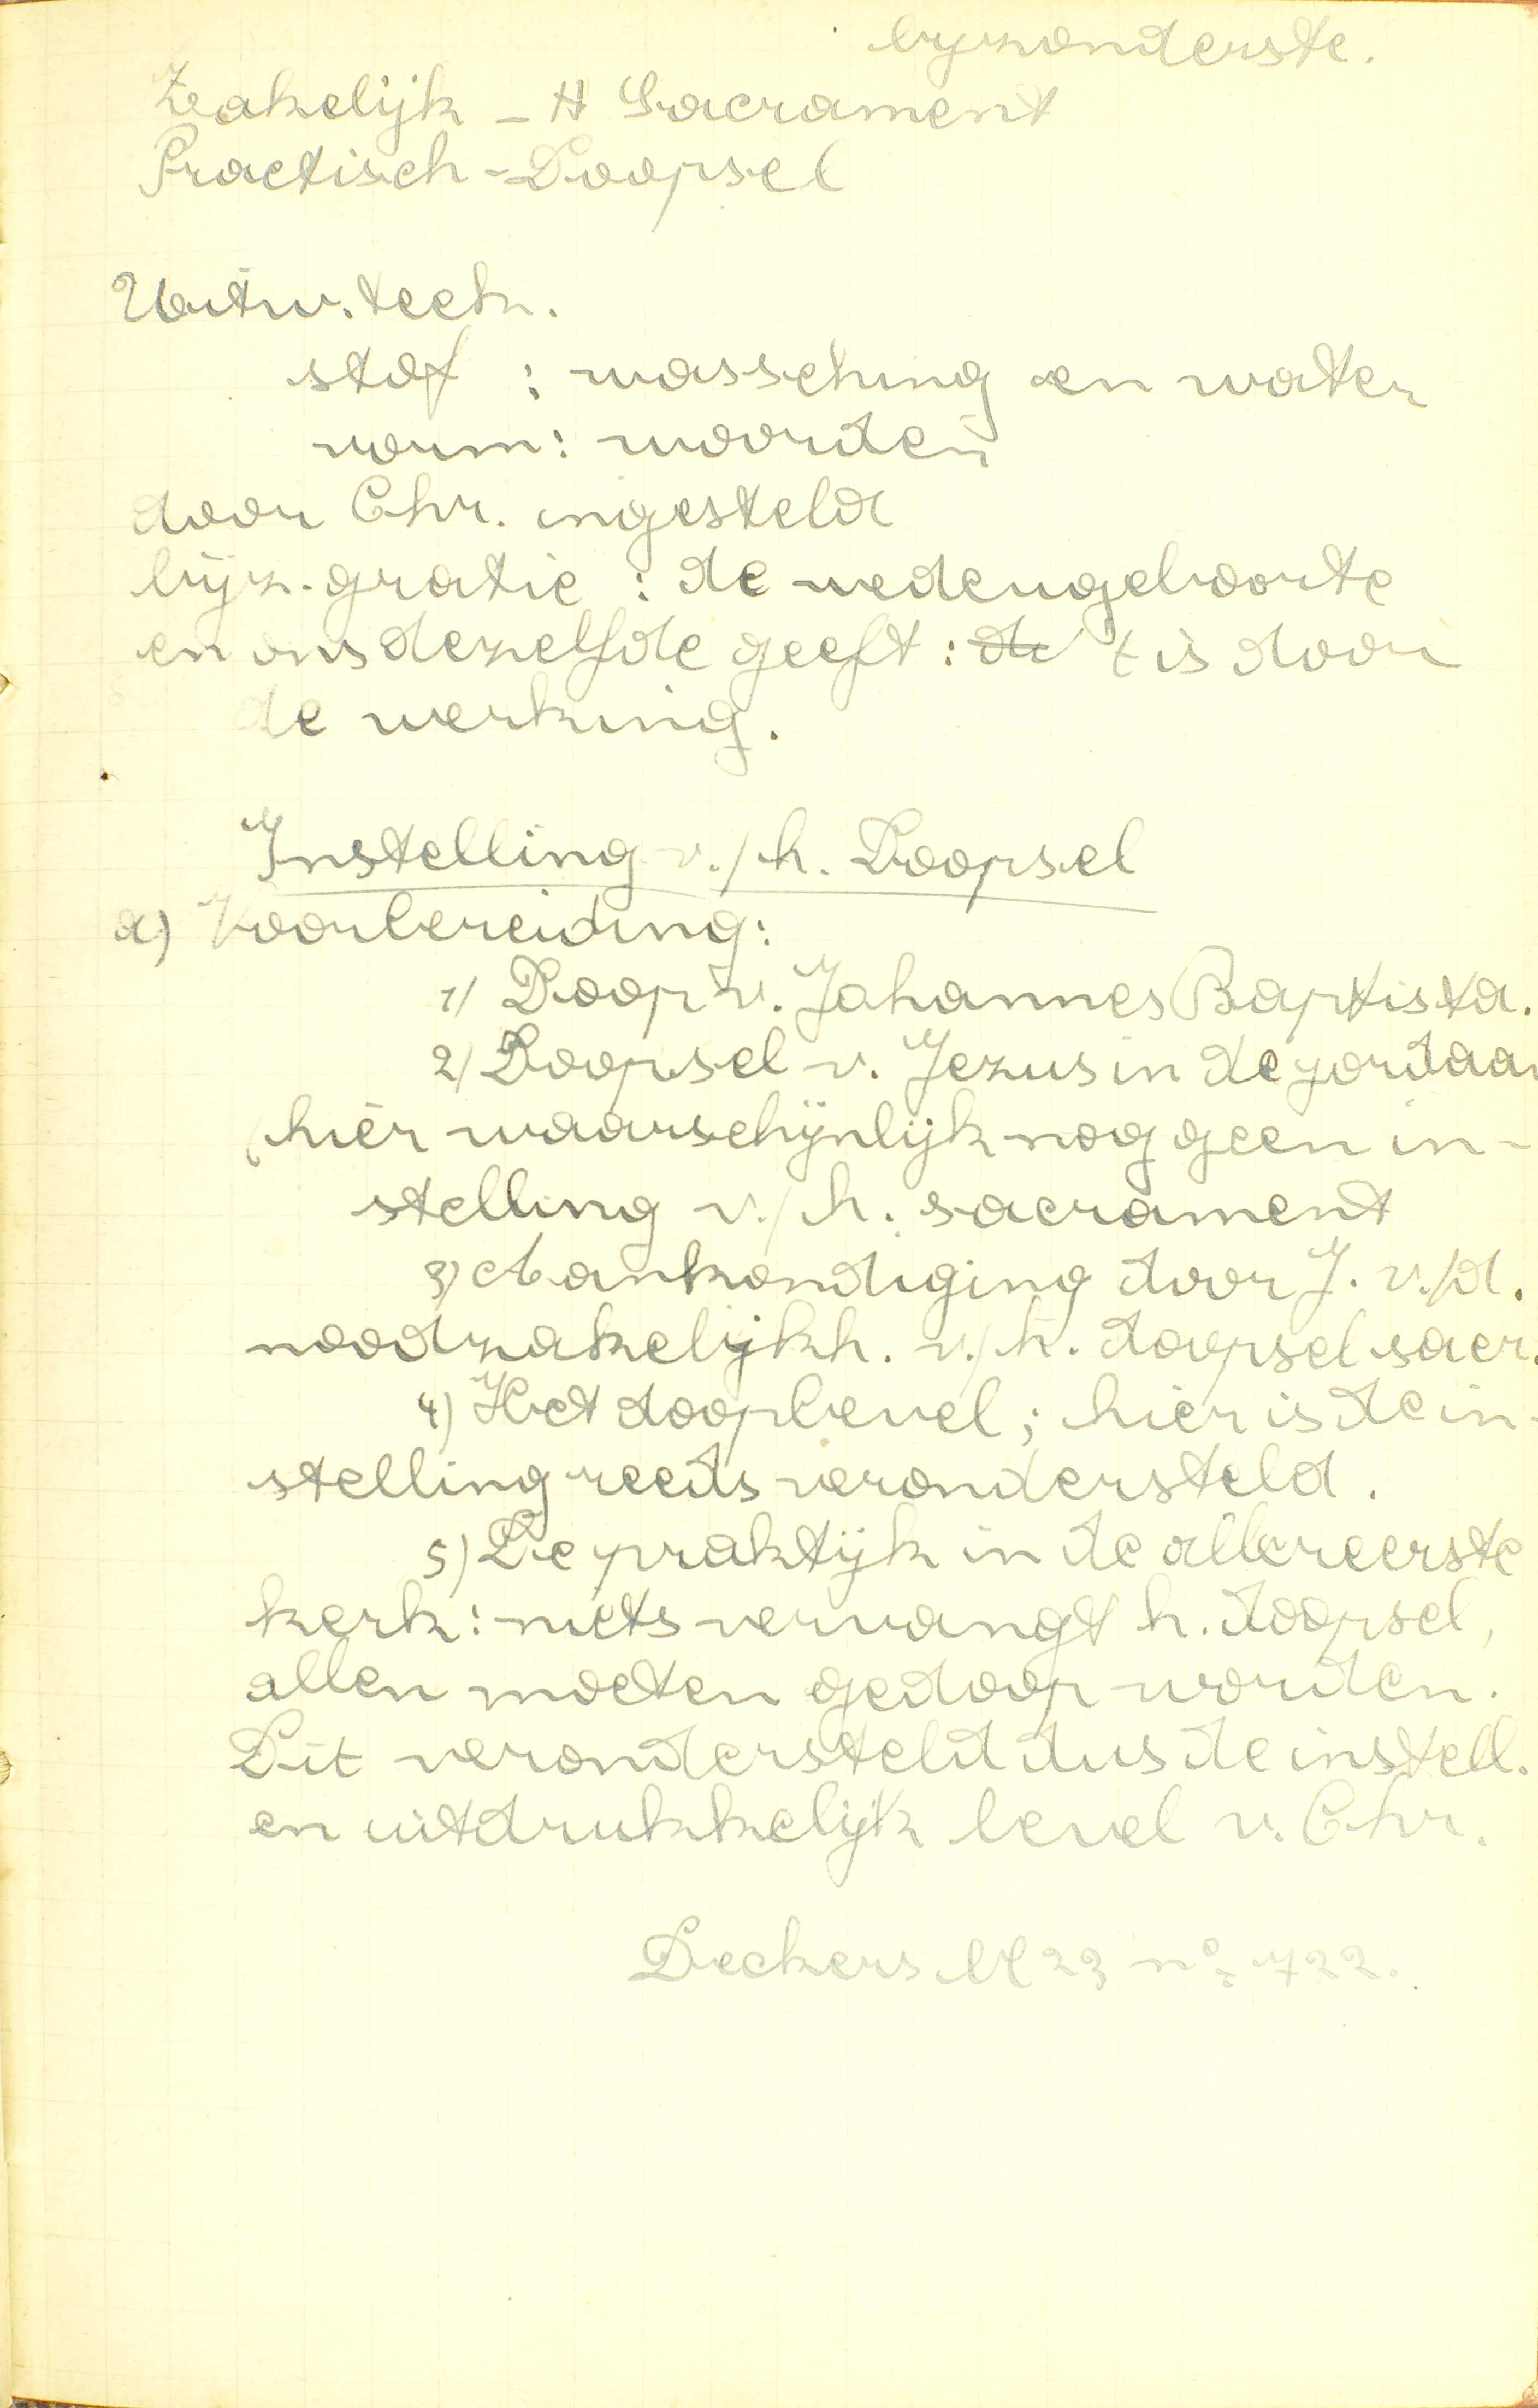 byzonderste.
Zakelijk - H Sacrament
Practisch - Doopsel
Uitw. teek.
stof : wassching en water
vorm : woorden
door Chr. ingesteld
bijz. gratie : de wedergeboorte
en ons dezelfde geeft : de t is door
de werking.
Instelling v./h. Doopsel
a) Voorbereiding :
1) Doop v. Johannes Baptista.
2) Doopsel v. Jezus in de jordaan
(hier waarschijnlijk nog geen in-
stelling v./h. sacrament
3) Aankondiging door J. v./d.
noodzakelijkh. v./h. doopsel sacr.
4) Het doopbevel ; hier is de in-
stelling reeds verondersteld.
5) De praktijk in de allereerste
kerk : niets vervangt h. doopsel,
allen moeten gedoop worden.
Dit veronderstelt dus de instell.
en uitdrukkelijk bevel v. Chr.
Deckers bl 23 nº 722.